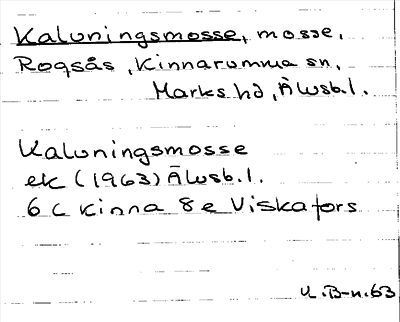 Kaluningsmosse, mosse,
Rogsås, Kinnarumma sn,
Marks hd, Älvsb.l.
Kaluningsmosse
ek (1963) Älvsb.l.
6 c Kinna 8 e Viskafors
U.B-n.63